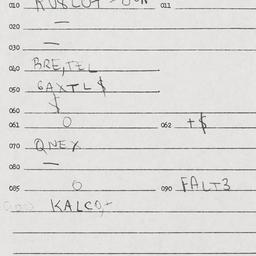 010 011
020 —
030 —
040 BRE,TEL
050 GAXTL $
060 $
061 0 062 +$
070 QNEX
080 —
085 0 090 FALT3
KALCO,-